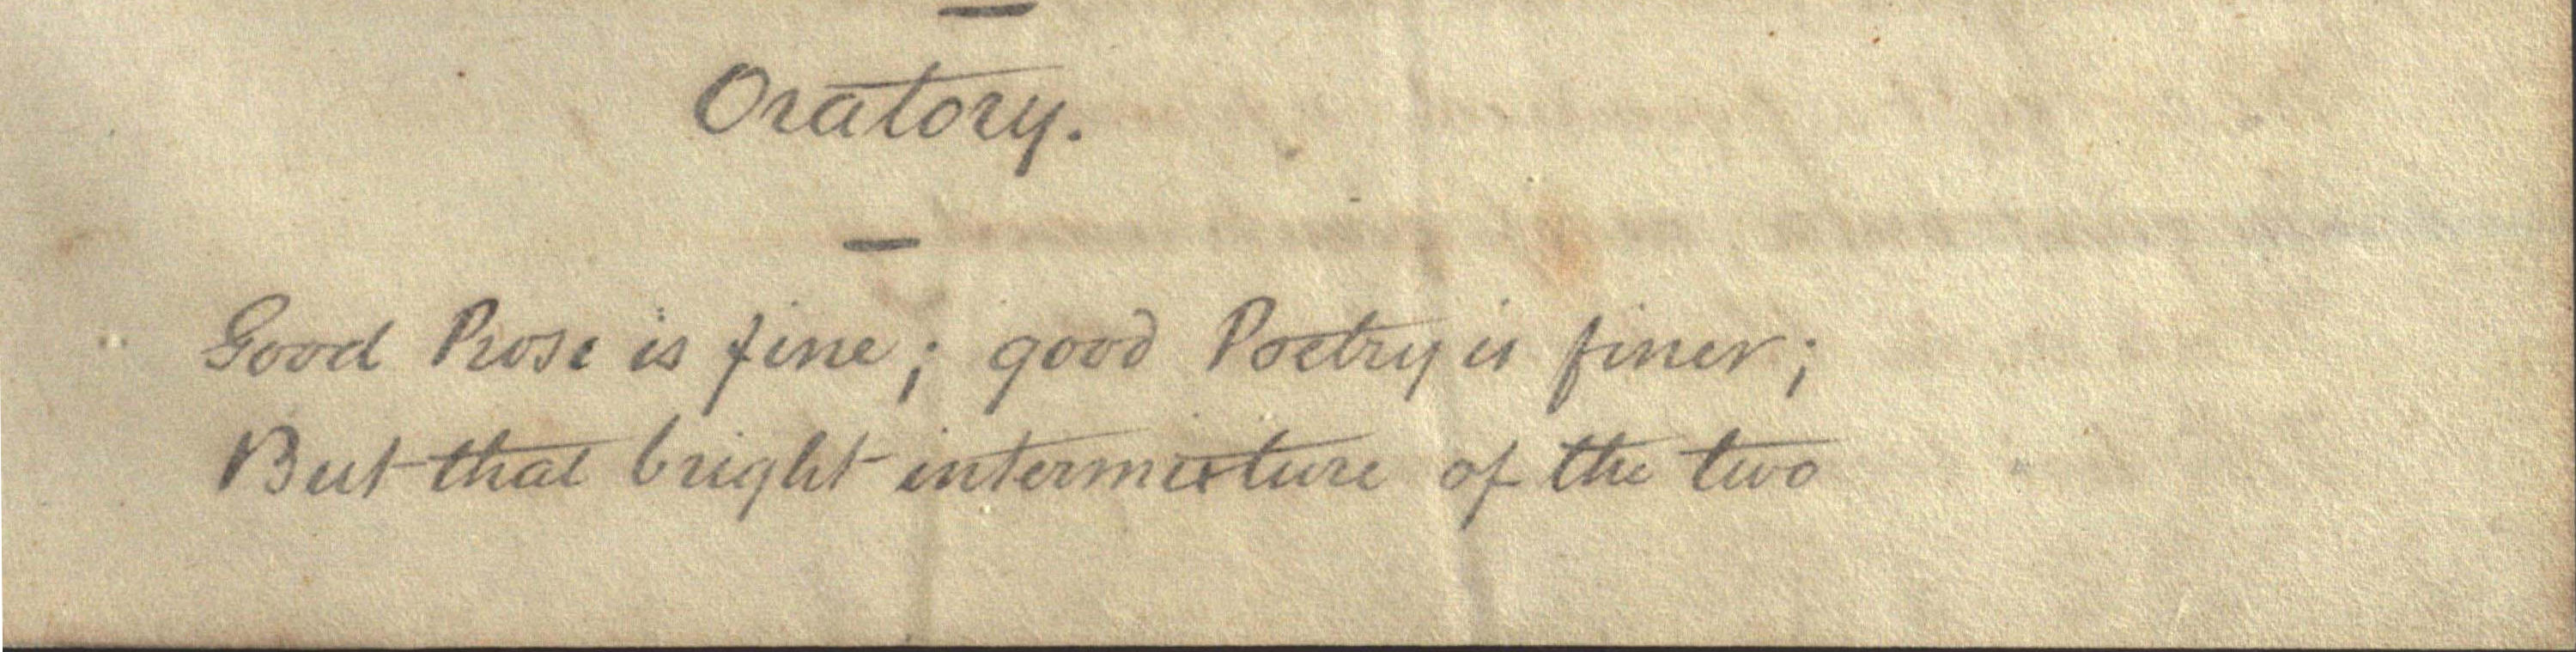 Oratory.
Good Prose is fine; good Poetry is finer;
But that bright intermixture of the two